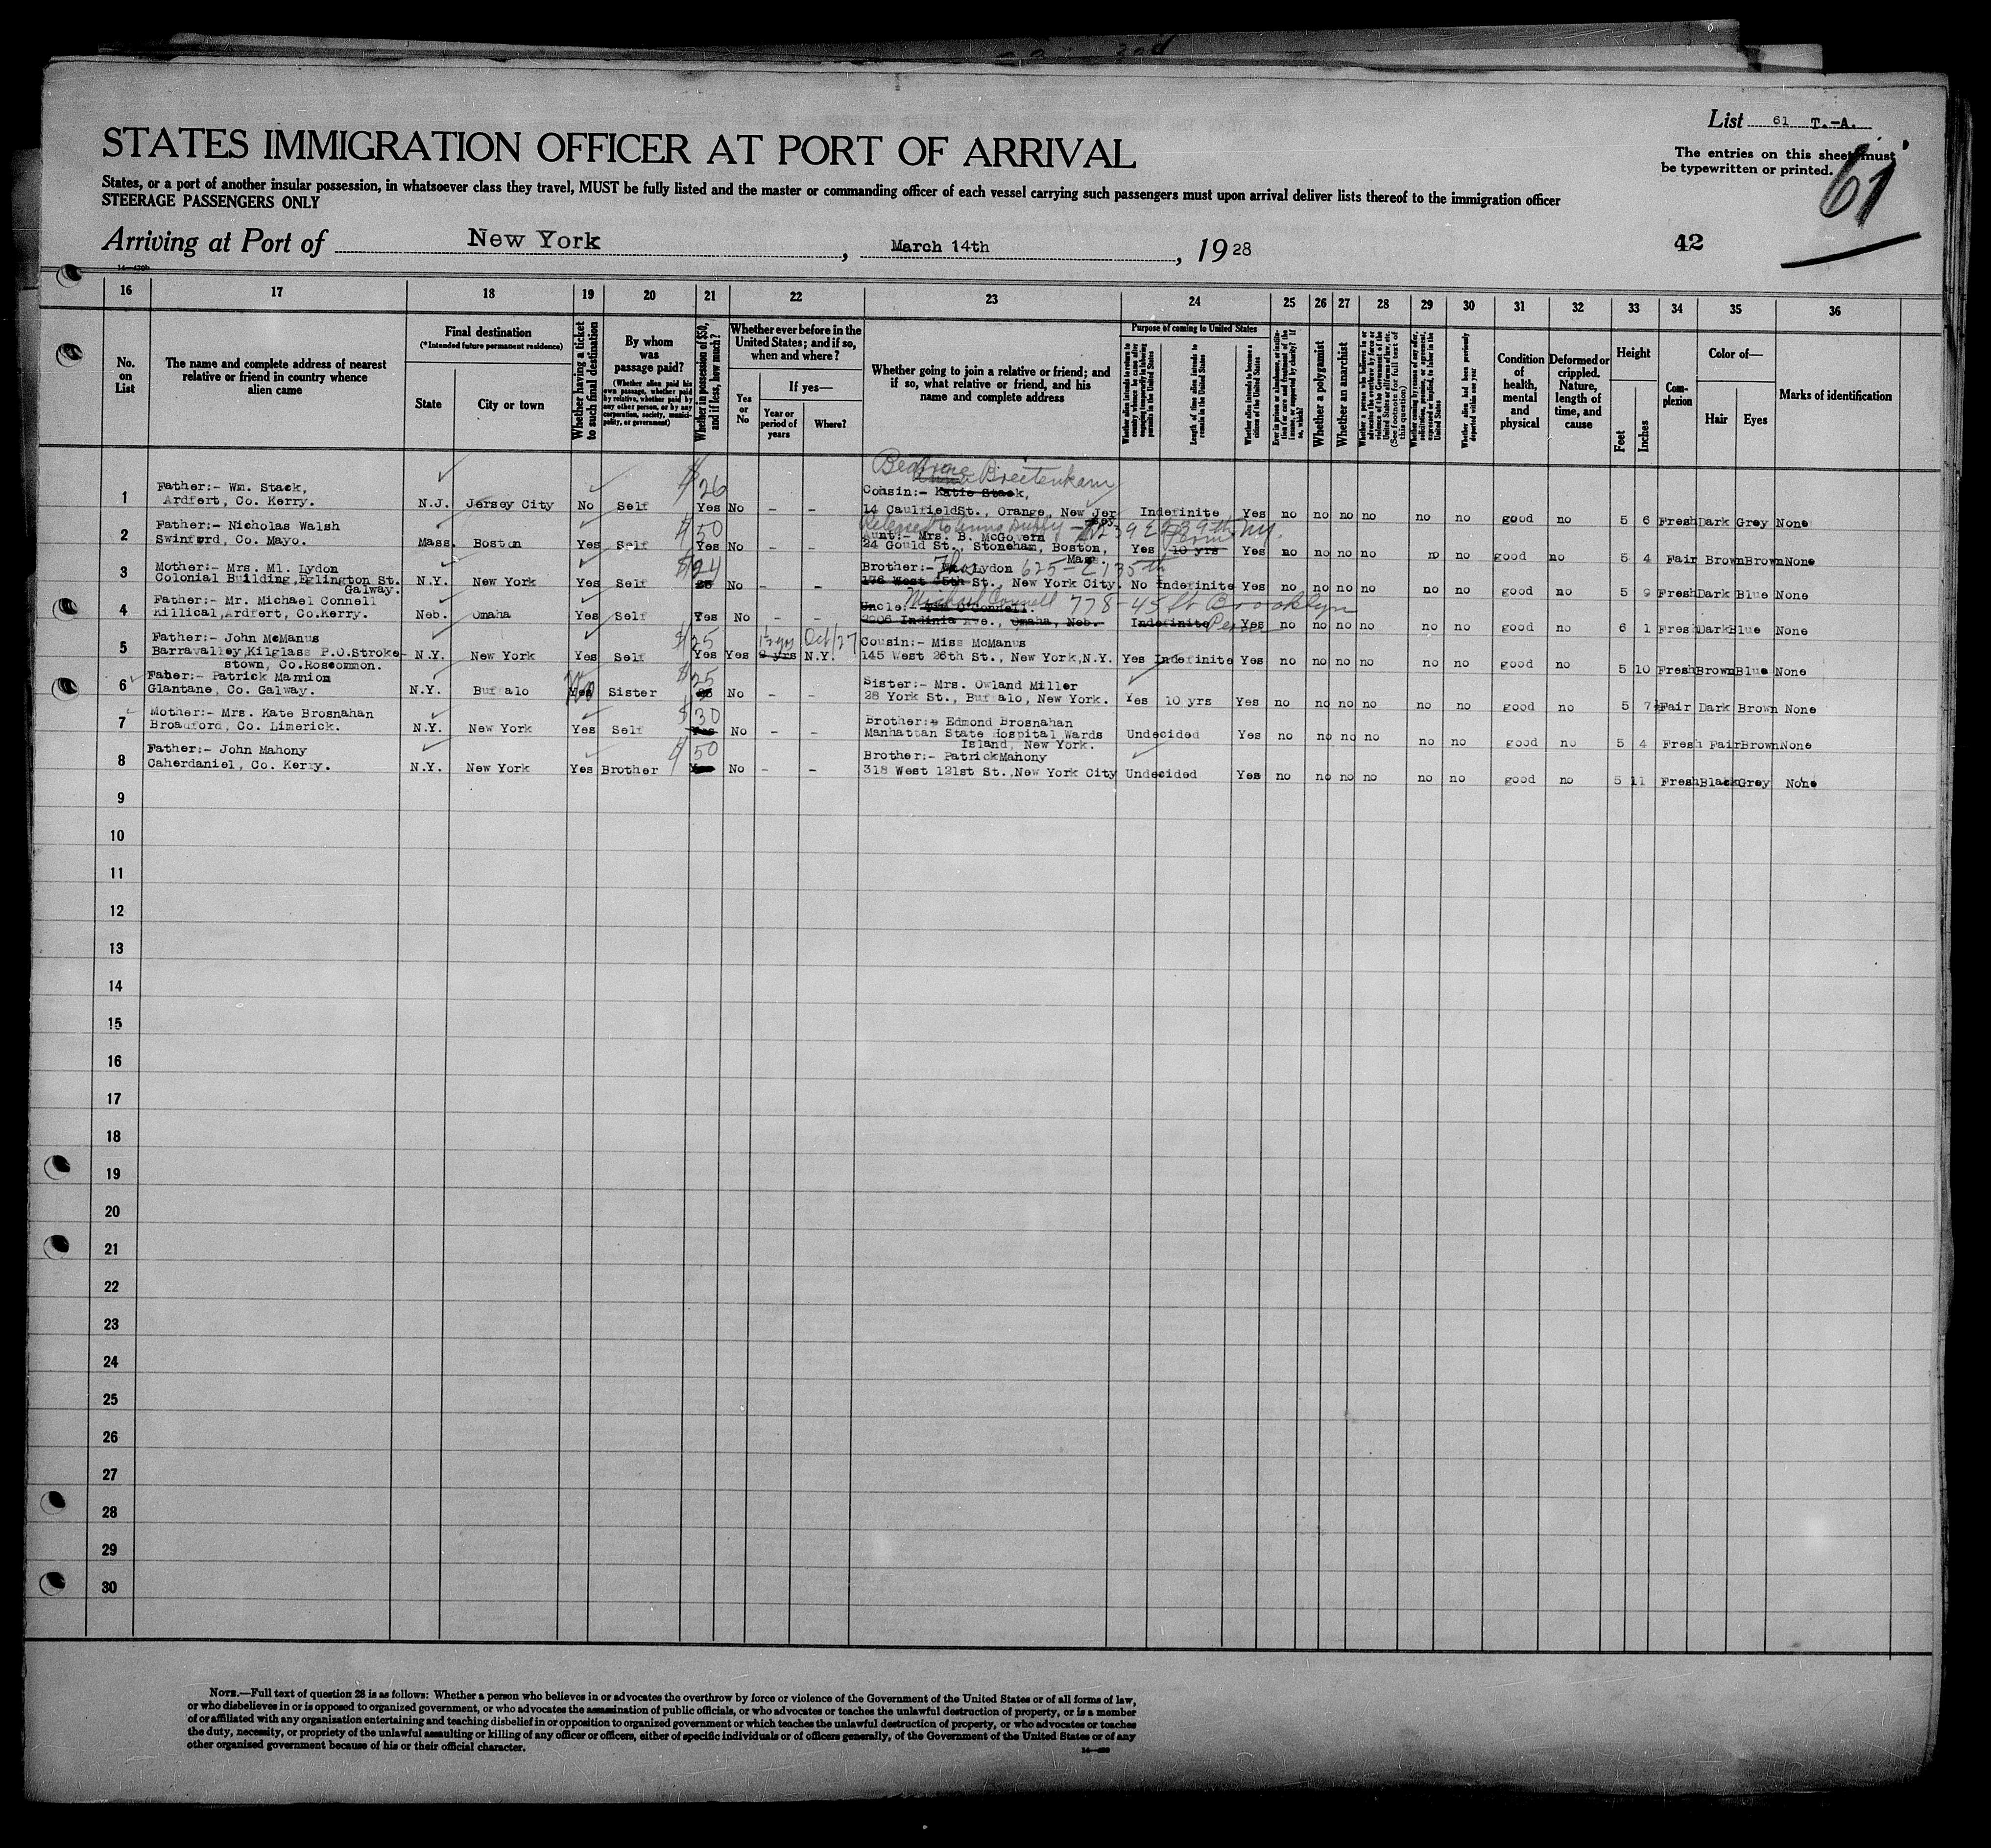 List 61 T.-A.
STATES IMMIGRATION OFFICER AT PORT OF ARRIVAL
The entries on this sheet must
be typewritten or printed.
61
States, or a port of another insular possession, in whatsoever class they travel, MUST be fully listed and the master or commanding officer of each vessel carrying such passengers must upon arrival deliver lists thereof to the immigration officer
STEERAGE PASSENGERS ONLY
Arriving at Port of New York, March 14th, 1928
42
16 17 18 19 20 21 22 23 24 25 26 27 28 29 30 31 32 33 34 35 36
No. on List
The name and complete address of nearest relative or friend in country whence alien came
Final destination
(*Intended future permanent residence)
State
City or town
Whether having a ticket to such final destination
By whom was passage paid?
(Whether alien paid his own passage, whether paid by relative, whether paid by any other person, or by any corporation, society, municipality, or government)
Whether in possession of $50, and if less, how much?
Whether ever before in the United States; and if so, when and where?
Yes or No
If yes—
Year or period of years
Where?
Whether going to join a relative or friend; and if so, what relative or friend, and his name and complete address
Purpose of coming to United States
Length of time alien intends to remain in the United States
Whether alien intends to become a citizen of the United States
Whether a polygamist
Whether an anarchist
Whether alien had been previously deported within one year
Condition of health, mental and physical
Deformed or crippled. Nature, length of time, and cause
Height
Feet
Inches
Complexion
Color of—
Hair
Eyes
Marks of identification
1 Father:- Wm. Stack,
Ardfert, Co. Kerry. N.J. Jersey City No Self $26 Yes No - - Breitenkam
Cousin:- Katie Stack,
14 CaulfieldSt., Orange, New Jer Indefinite Yes no no no no no no good no 5 6 Fresh Dark Grey None
2 Father:- Nicholas Walsh
Swinford, Co. Mayo. Mass. Boston Yes Self $50 Yes No - -
Aunt:- Mrs. B. McGovern
24 Gould St., Stoneham, Boston, Mass. Yes 10 yrs Yes no no no no no no good no 5 4 Fair Brown Brown None
3 Mother:- Mrs. Ml. Lydon
Colonial Building,Eglington St.
Galway. N.Y. New York Yes Self $24 No - -
Brother:- Lydon 625-E 135th
176 West 45th St., New York City. No Indefinite Yes no no no no no no good no 5 9 Fresh Dark Blue None
4 Father:- Mr. Michael Connell
Killical,Ardfert, Co.Kerry. Neb. Omaha Yes Self Yes No - -
Michael Connell 778-45 St Brooklyn
Uncle:-
Indinia Ave., Omaha, Neb. Indefinite Yes no no no no no no good no 6 1 Fresh Dark Blue None
5 Father:- John McManus
Barravalley,Kilglass P.O.Stroke-
stown, Co.Roscommon. N.Y. New York Yes Self $25 Yes Yes 1½ yrs 2 yrs Oct/27 N.Y.
Cousin:- Miss McManus
145 West 26th St., New York,N.Y. Yes Indefinite Yes no no no no no no good no 5 10 Fresh Brown Blue None
6 Faher:- Patrick Mannion
Glantane, Co. Galway. N.Y. Buffalo Yes No Sister $25 No - -
Sister:- Mrs. Owland Miller
28 York St., Buffalo, New York. Yes 10 yrs Yes no no no no no no good no 5 7½ Fair Dark Brown None
7 Mother:- Mrs. Kate Brosnahan
Broadford, Co. Limerick. N.Y. New York Yes Self $30 Yes No - -
Brother:- Edmond Brosnahan
Manhattan State Hospital Wards
Island, New York. Undecided Yes no no no no no no good no 5 4 Fresh Fair Brown None
8 Father:- John Mahony
Caherdaniel, Co. Kerry. N.Y. New York Yes Brother $50 No - -
Brother:- PatrickMahony
318 West 121st St.,New York City Undecided Yes no no no no no no good no 5 11 Fresh Black Grey None
9
10
11
12
13
14
15
16
17
18
19
20
21
22
23
24
25
26
27
28
29
30
NOTE.—Full text of question 28 is as follows: Whether a person who believes in or advocates the overthrow by force or violence of the Government of the United States or of all forms of law,
or who disbelieves in or is opposed to organized government, or who advocates the assassination of public officials, or who advocates or teaches the unlawful destruction of property, or is a member
of or affiliated with any organization entertaining and teaching disbelief in or opposition to organized government or which teaches the unlawful destruction of property, or who advocates or teaches
the duty, necessity, or propriety of the unlawful assaulting or killing of any officer or officers, either of specific individuals or of officers generally, of the Government of the United States or of any
other organized government because of his or their official character.